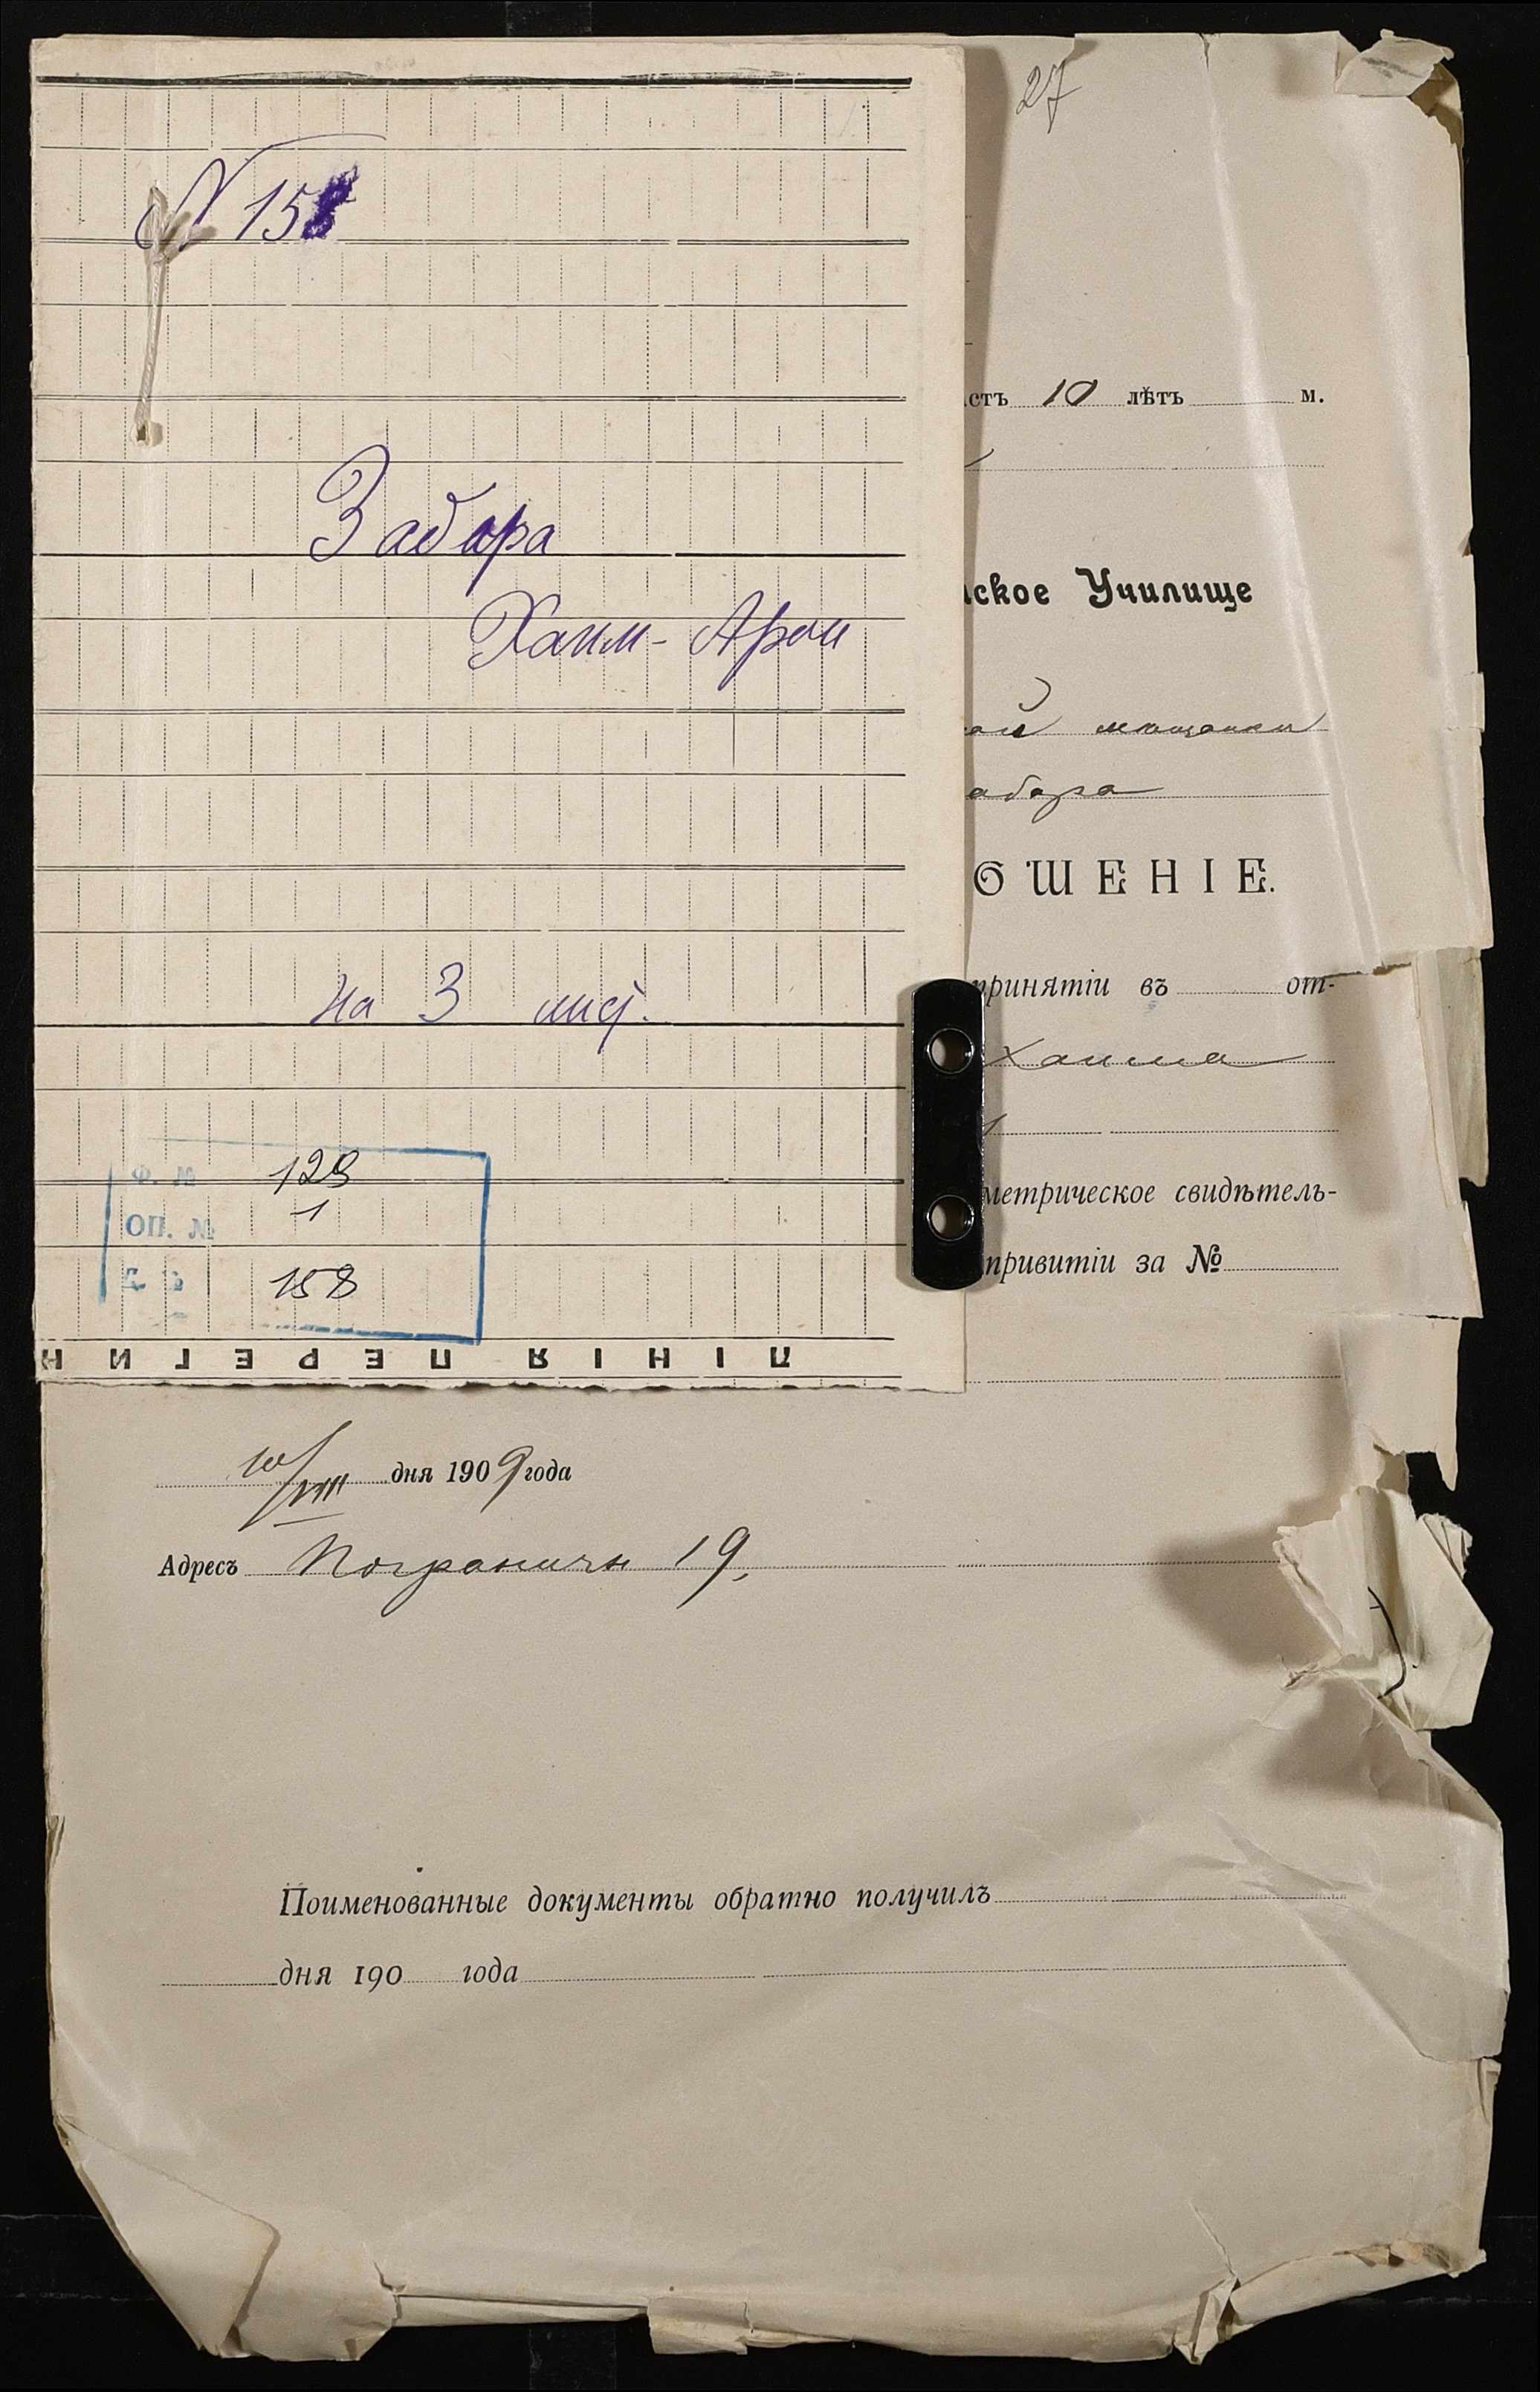 27
N 158
Забора
Хаим-Арон
на 3 лис.
Ф. № 129
ОП. № 1
158
ЛІНІЯ ПЕРЕГИ
стъ 10 лѣтъ м.
ское Училище
ой мѣщанки
абора
ОШЕНІЕ.
принятіи въ от-
Хаима
метрическое свидѣтель-
привитіи за №
10/VIII дня 1909 года
Адресъ Погранична 19,
Поименованные документы обратно получилъ
дня 190 года